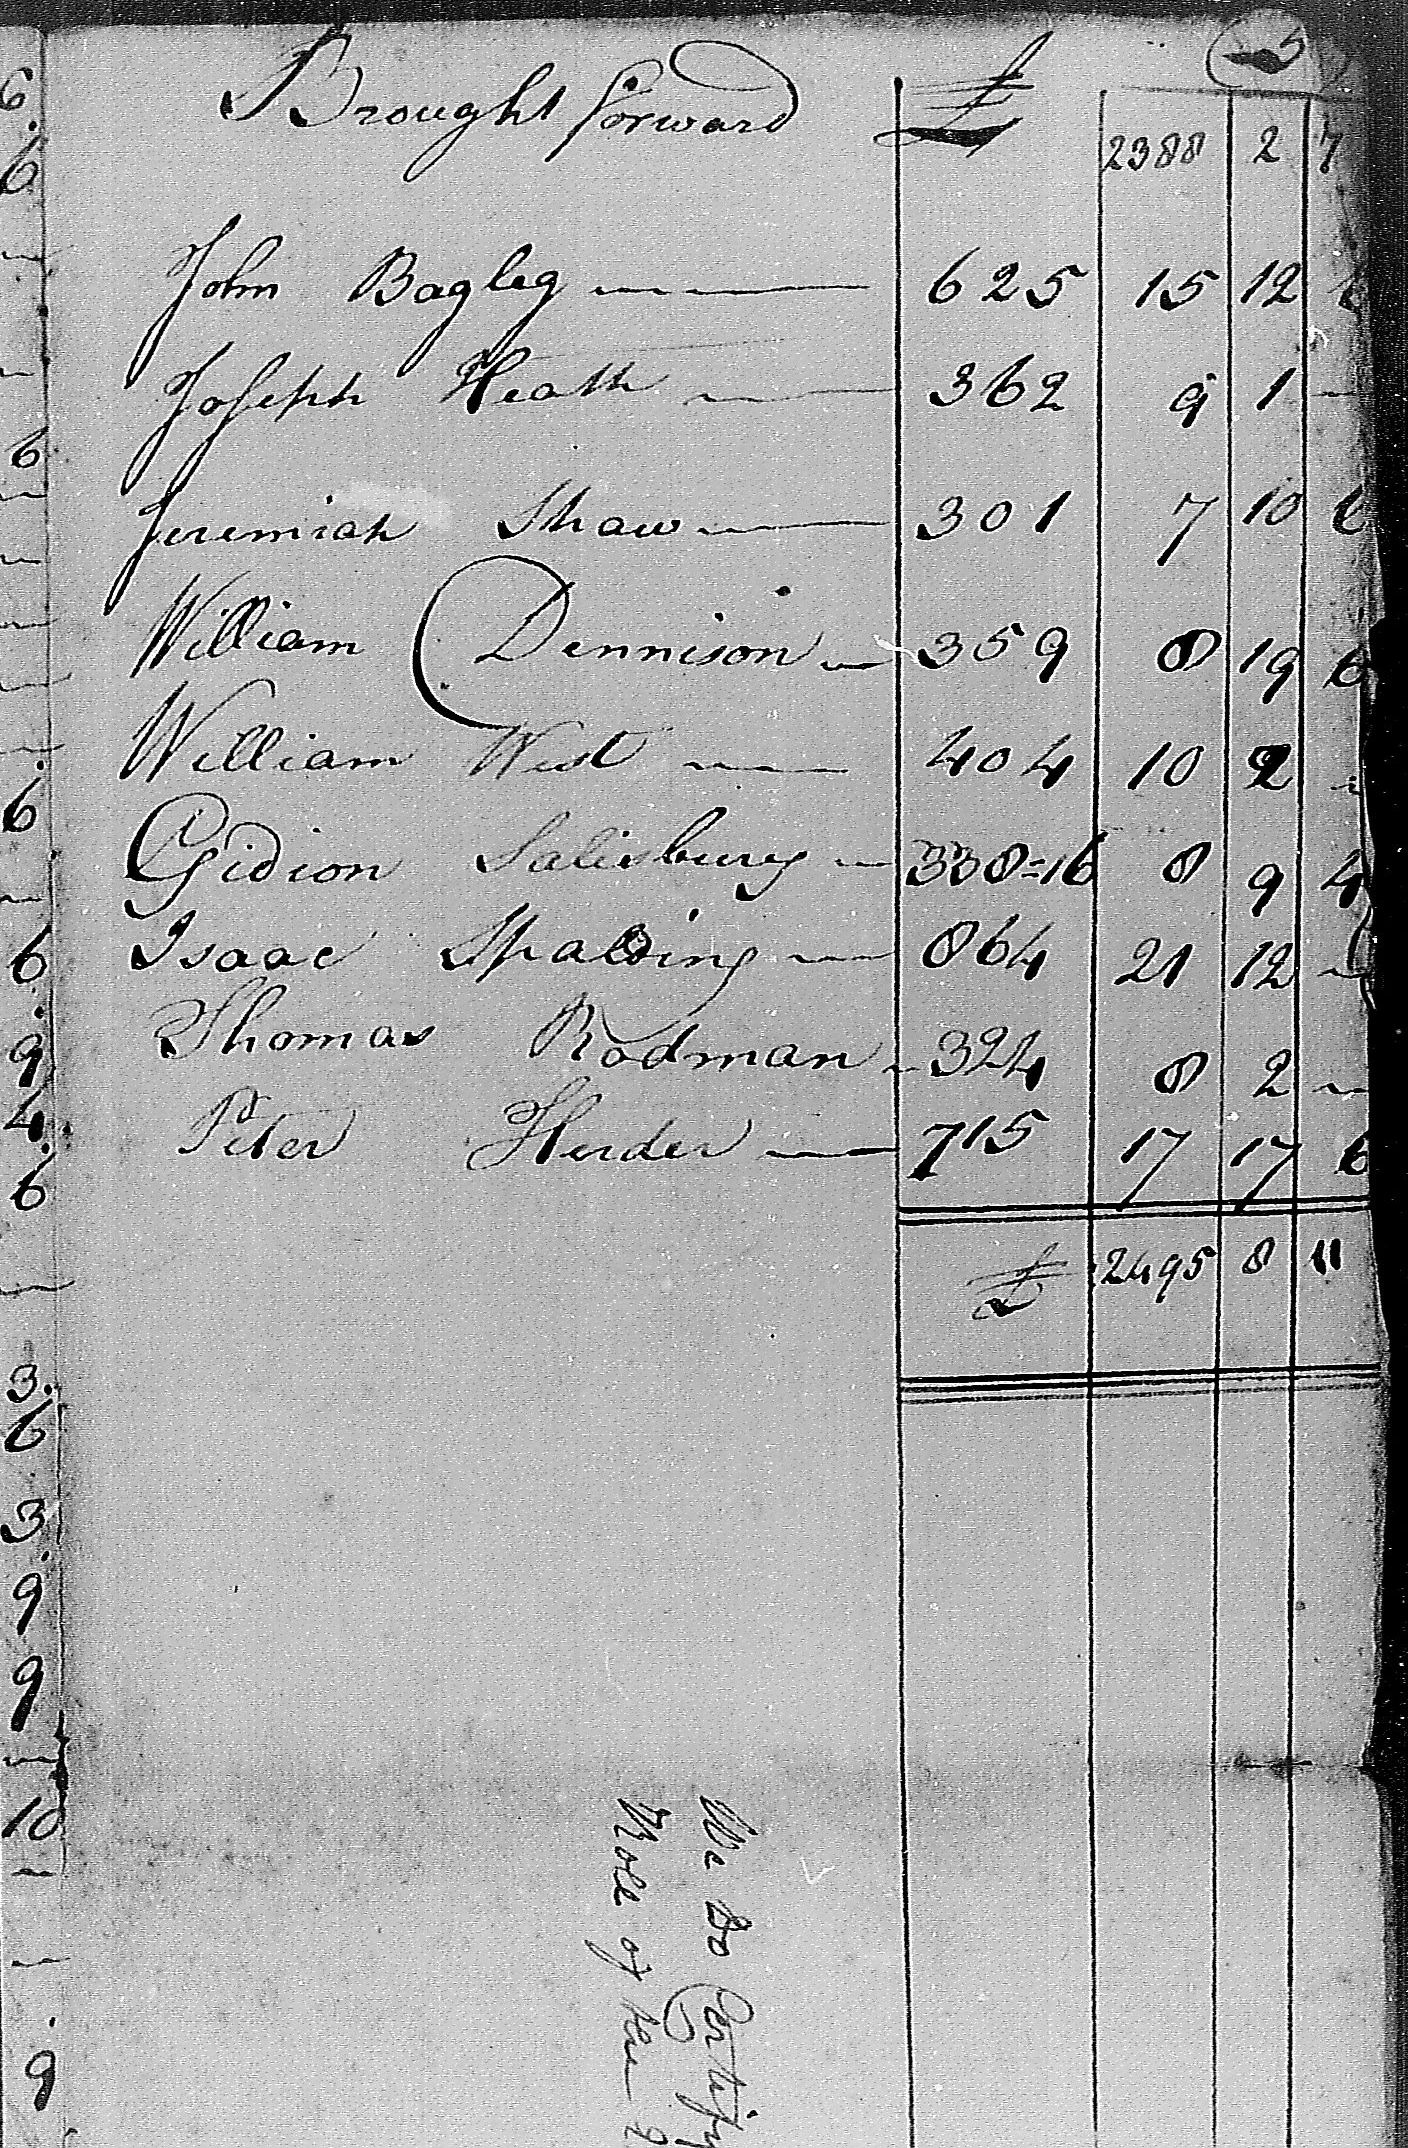 5
Brought forward £ 2388 2 7
John Bagley 625 15 12 6
Joseph Heath 362 9 1 —
Jeremiah Shaw 301 7 10 6
William Dennison 359 8 19 6
William West 404 10 2 —
Gidion Salisbury 338=16 8 9 4
Isaac Spalding 864 21 12 —
Thomas Rodman 324 8 2 —
Peter Herder 715 17 17 6
£ 2495 8 11
We Do Certify
Role of the 2
6
6
6
6
6
9
4
6
3
6
3
9
9
10
9